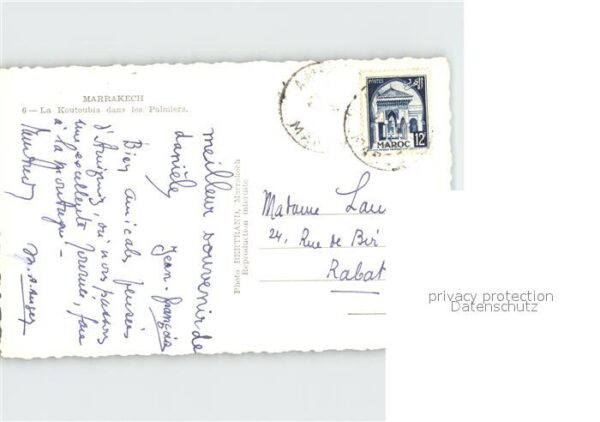 MARRAKECH
6 — La Koutoubia dans les Palmiers.
meilleur souvenir de
danièle Jean-françois
Bien amicales pensées
d'Amizmiz, où nous passons
une excellente journée, face
à la montagne -
Photo BERTRAND, Marrakech
Reproduction interdite
POSTES
12F
MAROC
Madame Lau
24, Rue de
Rabat
privacy protection
Datenschutz